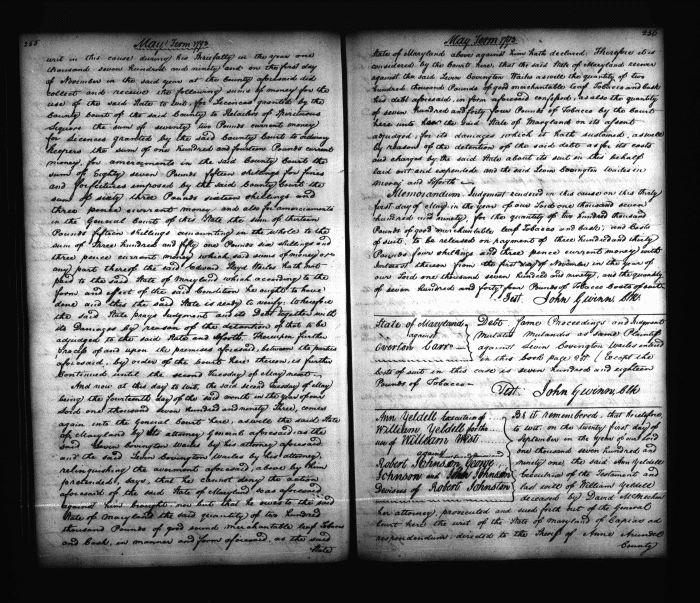 255
May Term 1793
writ in this cause during his Sheriffalty in the year one
thousand seven hundred and ninety and on the first day
of November in the said year at the County aforesaid did
collect and receive the following sums of money for the
use of the said State to wit, for Licences granted by the
County Court of the said County to Retailers of Spirituous
Liquors the sum of seventy two Pounds current money
for Licences granted by the said County Court to ordinary
keepers the sum of one hundred and fourteen Pounds current
money, for amerciaments in the said County Court the
sum of Eighty seven Pounds fifteen shillings for fines
and forfeitures imposed by the said County Court the
sum of sixty three Pounds sixteen shillings and
three pence current money and also for amerciaments
in the General Court of this State the sum of thirteen
Pounds fifteen shillings amounting in the whole to the
sum of Three hundred and fifty one Pounds six shillings and
three pence current money which said sums of money or
any part thereof the said Wailes hath not
paid to the said State of Maryland which according to the
form and effect of the said Condition he ought to have
done and this the said State is ready to verify; wherefore
the said State prays Judgment and its Debt together with
its Damages by reason of the detention of that to be
adjudged to the said State and so forth. Thereupon further
Process of and upon the premises aforesaid, between the parties
aforesaid, by order of the Court here thereon, is further
continued until the second tuesday of May next
And now at this day to wit, the said second Tuesday of May
being the fourteenth day of the said month in the year of our
Lord one thousand seven hundred and ninety Three, comes
again into the General Court here, as well the said State
of Maryland by its attorney general aforesaid, as the
said Leven Covington Wailes by his attorney aforesaid
and the said Leven Covington Wailes by his attorney,
relinquishing the averment aforesaid, above by him
pretended, says, that he cannot deny the action
aforesaid of the said State of Maryland was aforesaid
against him brought, nor but that he owes to the said
State of Maryland the said quantity of two hundred
thousand Pounds of good sound merchantable leaf Tobacco
and Cask, in manner and form aforesaid, as the said
State
256
May Term 1793
State of Maryland above against him hath declared. Therefore it is
considered by the Court here, that the said State of Maryland recover
against the said Leven Covington Wailes as well the quantity of two
hundred thousand Pounds of good merchantable leaf Tobacco and cask
his debt aforesaid, in form aforesaid confessed, as also the quantity
of seven hundred and forty four Pounds of Tobacco by the Court
here unto the said State of Maryland on its assent
adjudged, for its damages which it hath sustained, as well
by reason of the detention of the said debt as for its costs
and charges by the said State about its suit in this behalf
laid out and expended and the said Leven Covington Wailes in
mercy and so forth
Memorandum Judgment rendered in this cause on this thirty
first day of May in the year of our Lord one thousand seven
hundred and ninety, for the quantity of two hundred thousand
Pounds of good merchantable leaf Tobacco and cask, and Costs
of suit, to be released on payment of three hundred and thirty
Pounds four shillings and three pence current money with
Interest thereon from the first day of November in the year of
our Lord one thousand seven hundred and ninety, and the quantity
of seven hundred and forty four Pounds of Tobacco Costs of suit
Test. John Gwinn Clk
State of Maryland
against
Overton Carr
Debt, same Proceedings and Judgment
Mutatis Mutandis as same Plaintiff
against Leven Covington Wailes entered
in this book page (Except the
Costs of suit in this case is seven hundred and eighteen
Pounds of Tobacco
Test. John Gwinn Clk
Ann Yeldell Executrix of
William Yeldell for the
use of William West
against
Robert Johnson George
Johnson and John Johnson
Devisees of Robert Johnston
Be it remembered, that heretofore,
to wit, on the twenty first day of
September in the year of our Lord
one thousand seven hundred and
ninety one, the said Ann Yeldell
Executrix of the Testament and
last will of William Yeldell
deceased by David McMechen
her attorney, prosecuted and sued forth out of the General
Court here the writ of the State of Maryland of Capias ad
respondendum, directed to the Sheriff of Anne Arundel
County